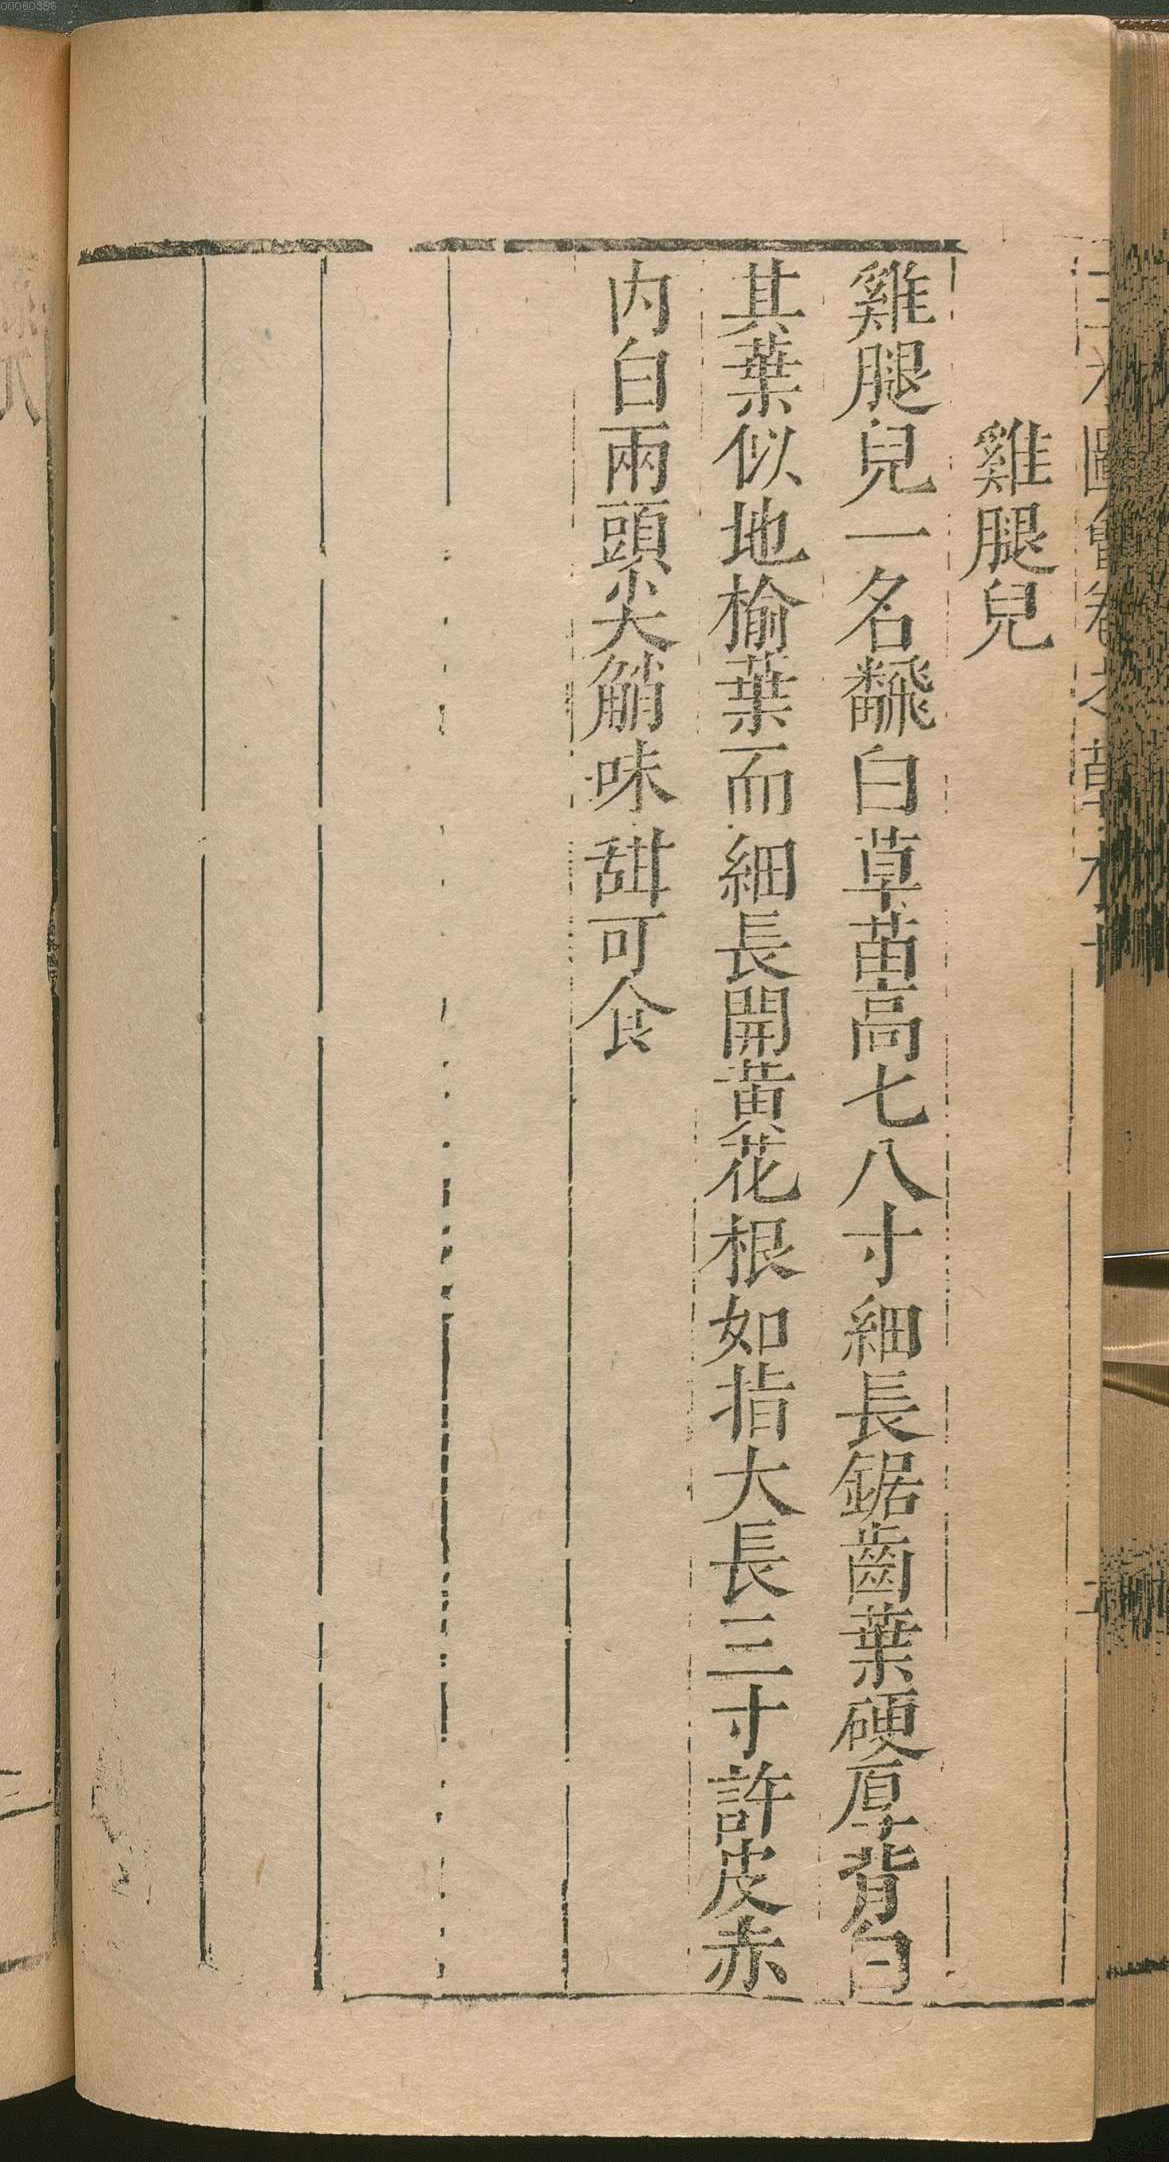 雞腿兒
雞腿兒一名飜白草苗高七八寸細長鋸齒葉硬厚背白
其葉似地榆葉而細長開黃花根如指大長三寸許皮赤
内白兩頭尖䚹味甜可食
00060356